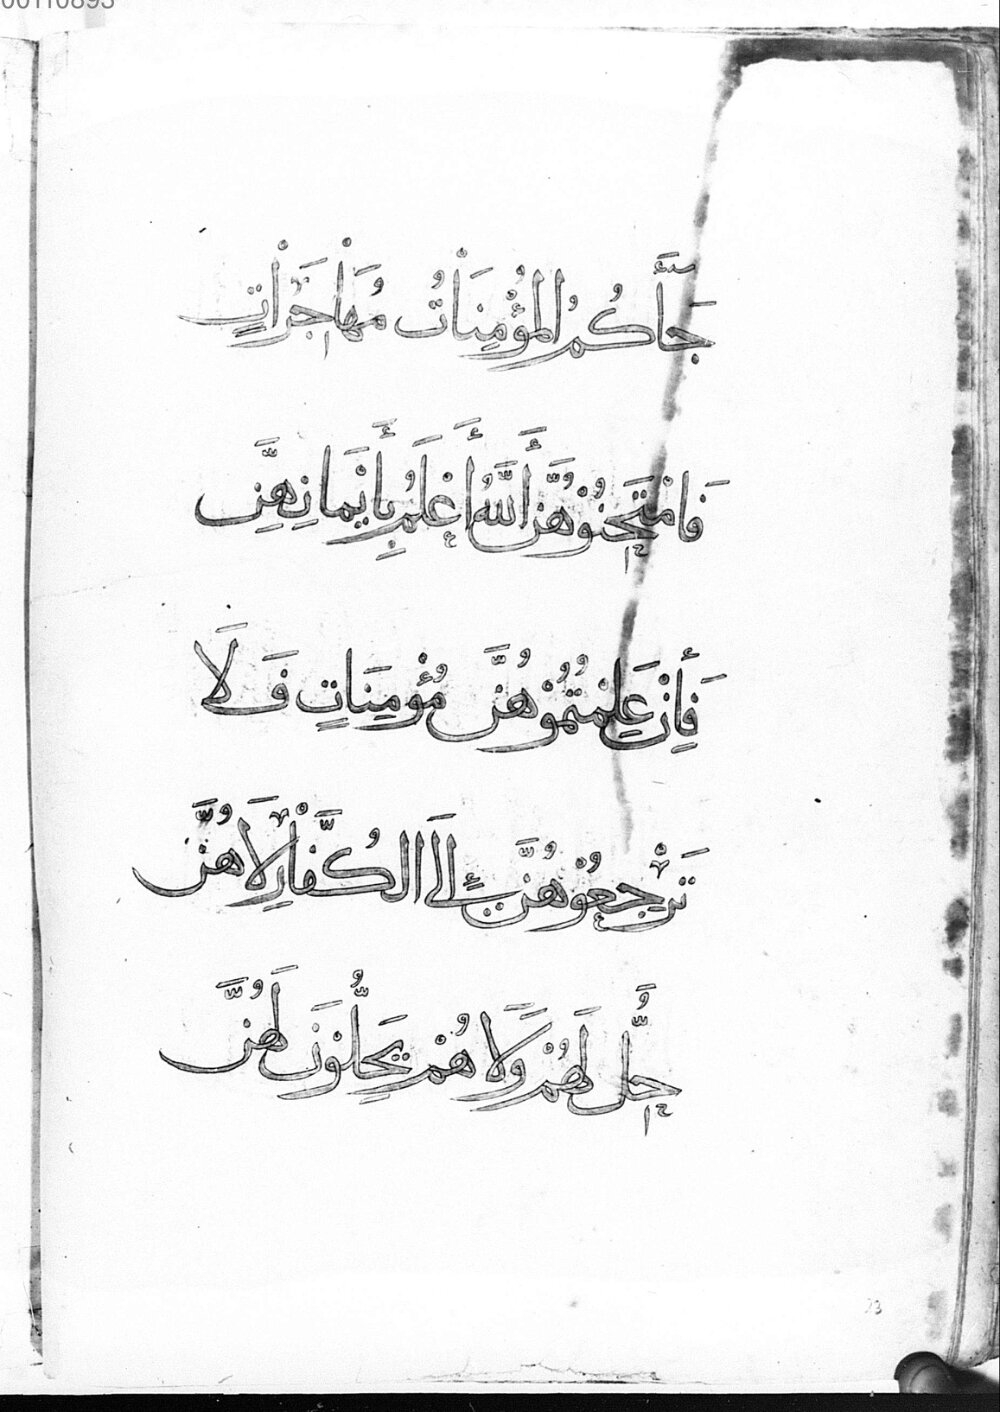 00110893
جَآَٔكُمُ الْمُؤْمِنَاتُ مُهَاجِرَاتٍ
فَامْتَحِنُوْهُنَّ أَللَّهُ أَعْلَمُ بِأَيْمَانِهِنَّ
فَأِنْ عَلِمْتُمُوْهُنَّ مُؤْمِنَاتٍ فَلَا
تَرْجِعُوْهُنَّ إِلَى الْكُفَّارِ لَاهُنَّ
حِلٌّ لَهُمْ وَلَا هُمْ يَحِلُّوْنَ لَهُنَّ
23